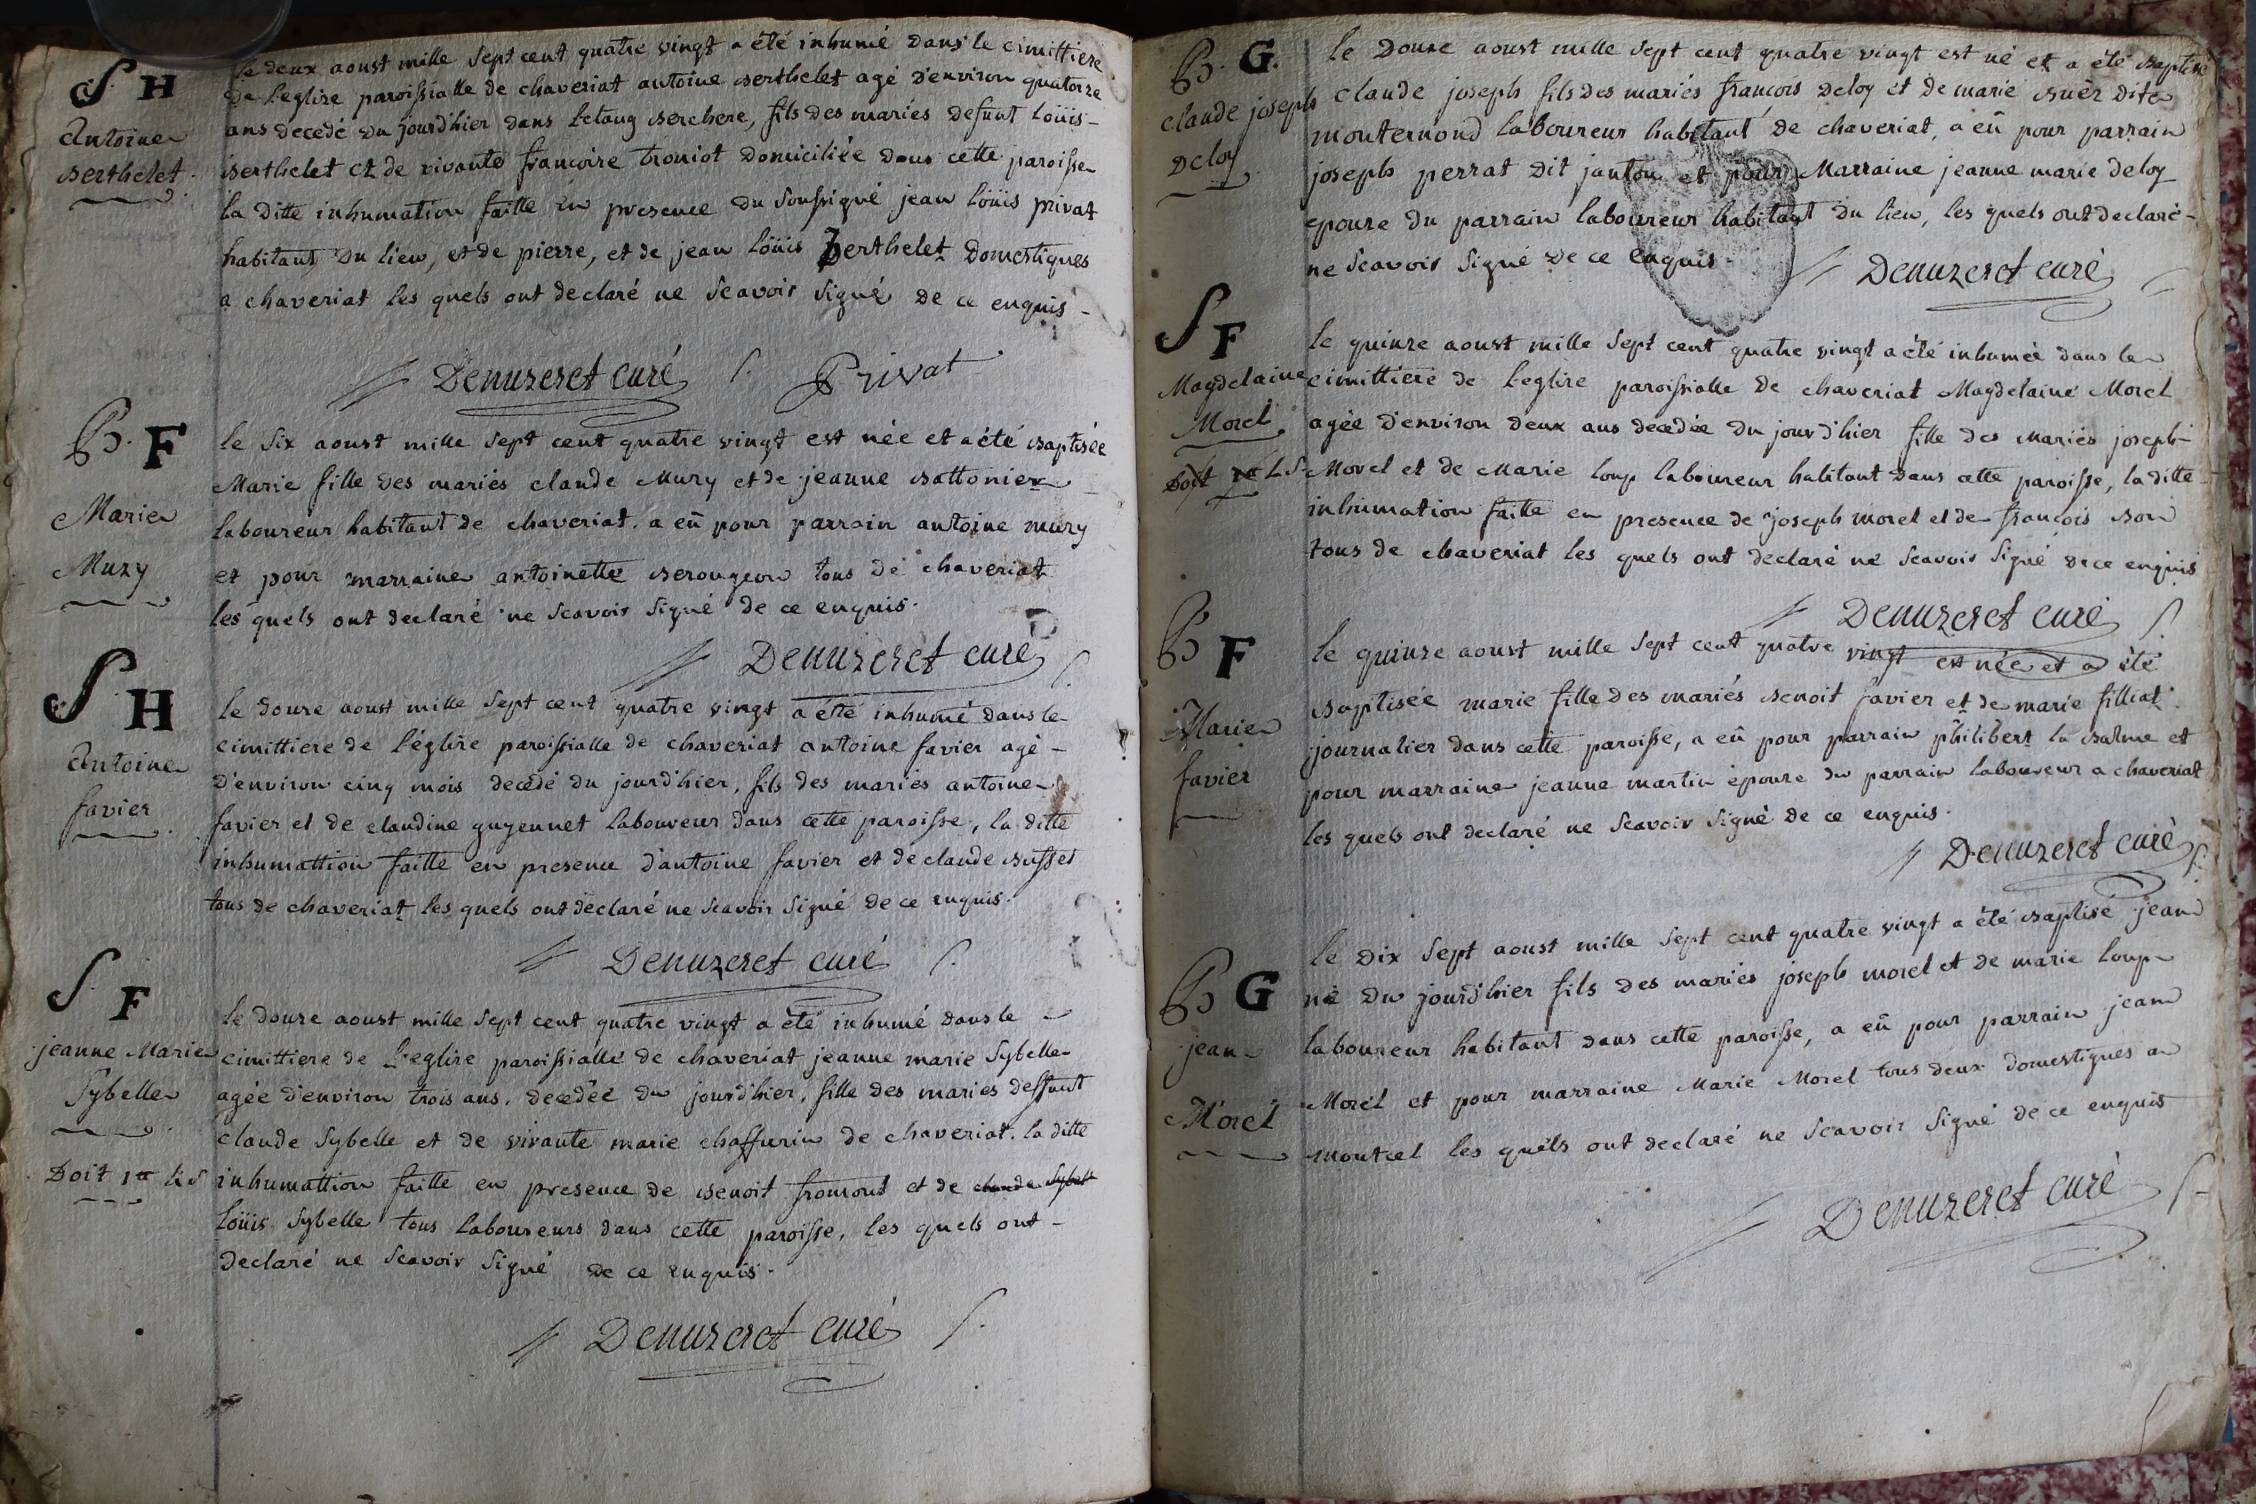 S. H
Antoine
Berthelet.
le deux aoust mille sept cent quatre vingt a été inhumé dans le cimittiere
de l'eglise paroissialle de chaveriat antoine Berthelet agé d'environ quatorze
ans decedé du jourd'hier dans l'etang Berchere, fils des mariés defunt loüis
Berthelet et de vivante francoise troniot domiciliée dans cette paroisse
la ditte inhumation faitte en presence du soussigné jean loüis privat
habitant du lieu, et de pierre, et de jean loüis Berthelet domestiques
a chaveriat les quels ont declaré ne scavoir signé de ce enquis -
Denuzeret curé Privat
B. F
Marie
Muzy
le six aoust mille sept cent quatre vingt est née et a été Baptisée
Marie fille des mariés claude Muzy et de jeanne Battonier
laboureur habitant de chaveriat. a eü pour parrain antoine muzy
et pour marraine antoinette Berougeon tous de chaveriat
les quels ont declaré ne scavoir signé de ce enquis.
Denuzeret curé
S. H
Antoine
favier
le douze aoust mille sept cent quatre vingt a été inhumé dans le
cimittiere de l'église paroissialle de chaveriat antoine favier agé -
d'environ cinq mois decédé du jourd'hier, fils des mariés antoine
favier et de claudine guyennet laboureur dans cette paroisse, la ditte
inhumattion faitte en presence d'antoine favier et de claude Busset
tous de chaveriat les quels ont déclaré ne scavoir signé de ce enquis.
Denuzeret curé
S. F
jeanne Marie
Sybelle
Doit 1tt Ls
le douze aoust mille sept cent quatre vingt a été inhumé dans le
cimittiere de l'eglise paroissialle de chaveriat jeanne marie Sybelle
agée d'environ trois ans, decedée du jourd'hier, fille des maries deffunt
claude Sybelle et de vivante marie chaffurin de chaveriat. la ditte
inhumattion faitte en presence de Benoit fromont et de claude Sybelle
loüis Sybelle tous laboureurs dans cette paroisse, les quels ont -
declaré ne scavoir signé de ce enquis.
Denuzeret curé
B. G.
claude joseph
Deloy
le Douze aoust mille sept cent quatre vingt est né et a été Baptisé
claude joseph fils des mariés francois Deloy et de marie Buër dite
monternond laboureur habitant de chaveriat, a eü pour parrain
joseph perrat dit janton et pour Marraine jeanne marie deloy
epouse du parrain laboureur habitant du lieu, les quels ont declaré -
ne scavoir signé de ce enquis.
Denuzeret curé
S F
Magdelaine
Morel
Doit LS
le quinze aoust mille sept cent quatre vingt a été inhumée dans le
cimittiere de l'eglise paroissialle de chaveriat Magdelaine Morel
agée d'environ deux ans decedée du jourd'hier fille des Mariés joseph
Morel et de Marie loup laboureur habitant dans cette paroisse, la ditte
inhumation faitte en presence de joseph morel et de francois Bon
tous de chaveriat les quels ont declaré ne scavoir signé de ce enquis
Denuzeret curé
B F
Marie
favier
le quinze aoust mille sept cent quatre vingt est née et a été
Baptisée marie fille des mariés Benoit favier et de marie filliat
journalier dans cette paroisse, a eü pour parrain philibert la Balme et
pour marraine jeanne martin épouse du parrain laboureur a chaveriat
les quels ont declaré ne scavoir signé de ce enquis.
Denuzeret curé
B G
jean
Morel
le dix sept aoust mille sept cent quatre vingt a été Baptisé jean
né du jourd'hier fils des mariés joseph morel et de marie loup
laboureur habitant dans cette paroisse, a eü pour parrain jean
Morel et pour marraine Marie Morel tous deux domestiques au
montcel les quels ont declaré ne scavoir signé de ce enquis
Denuzeret curé